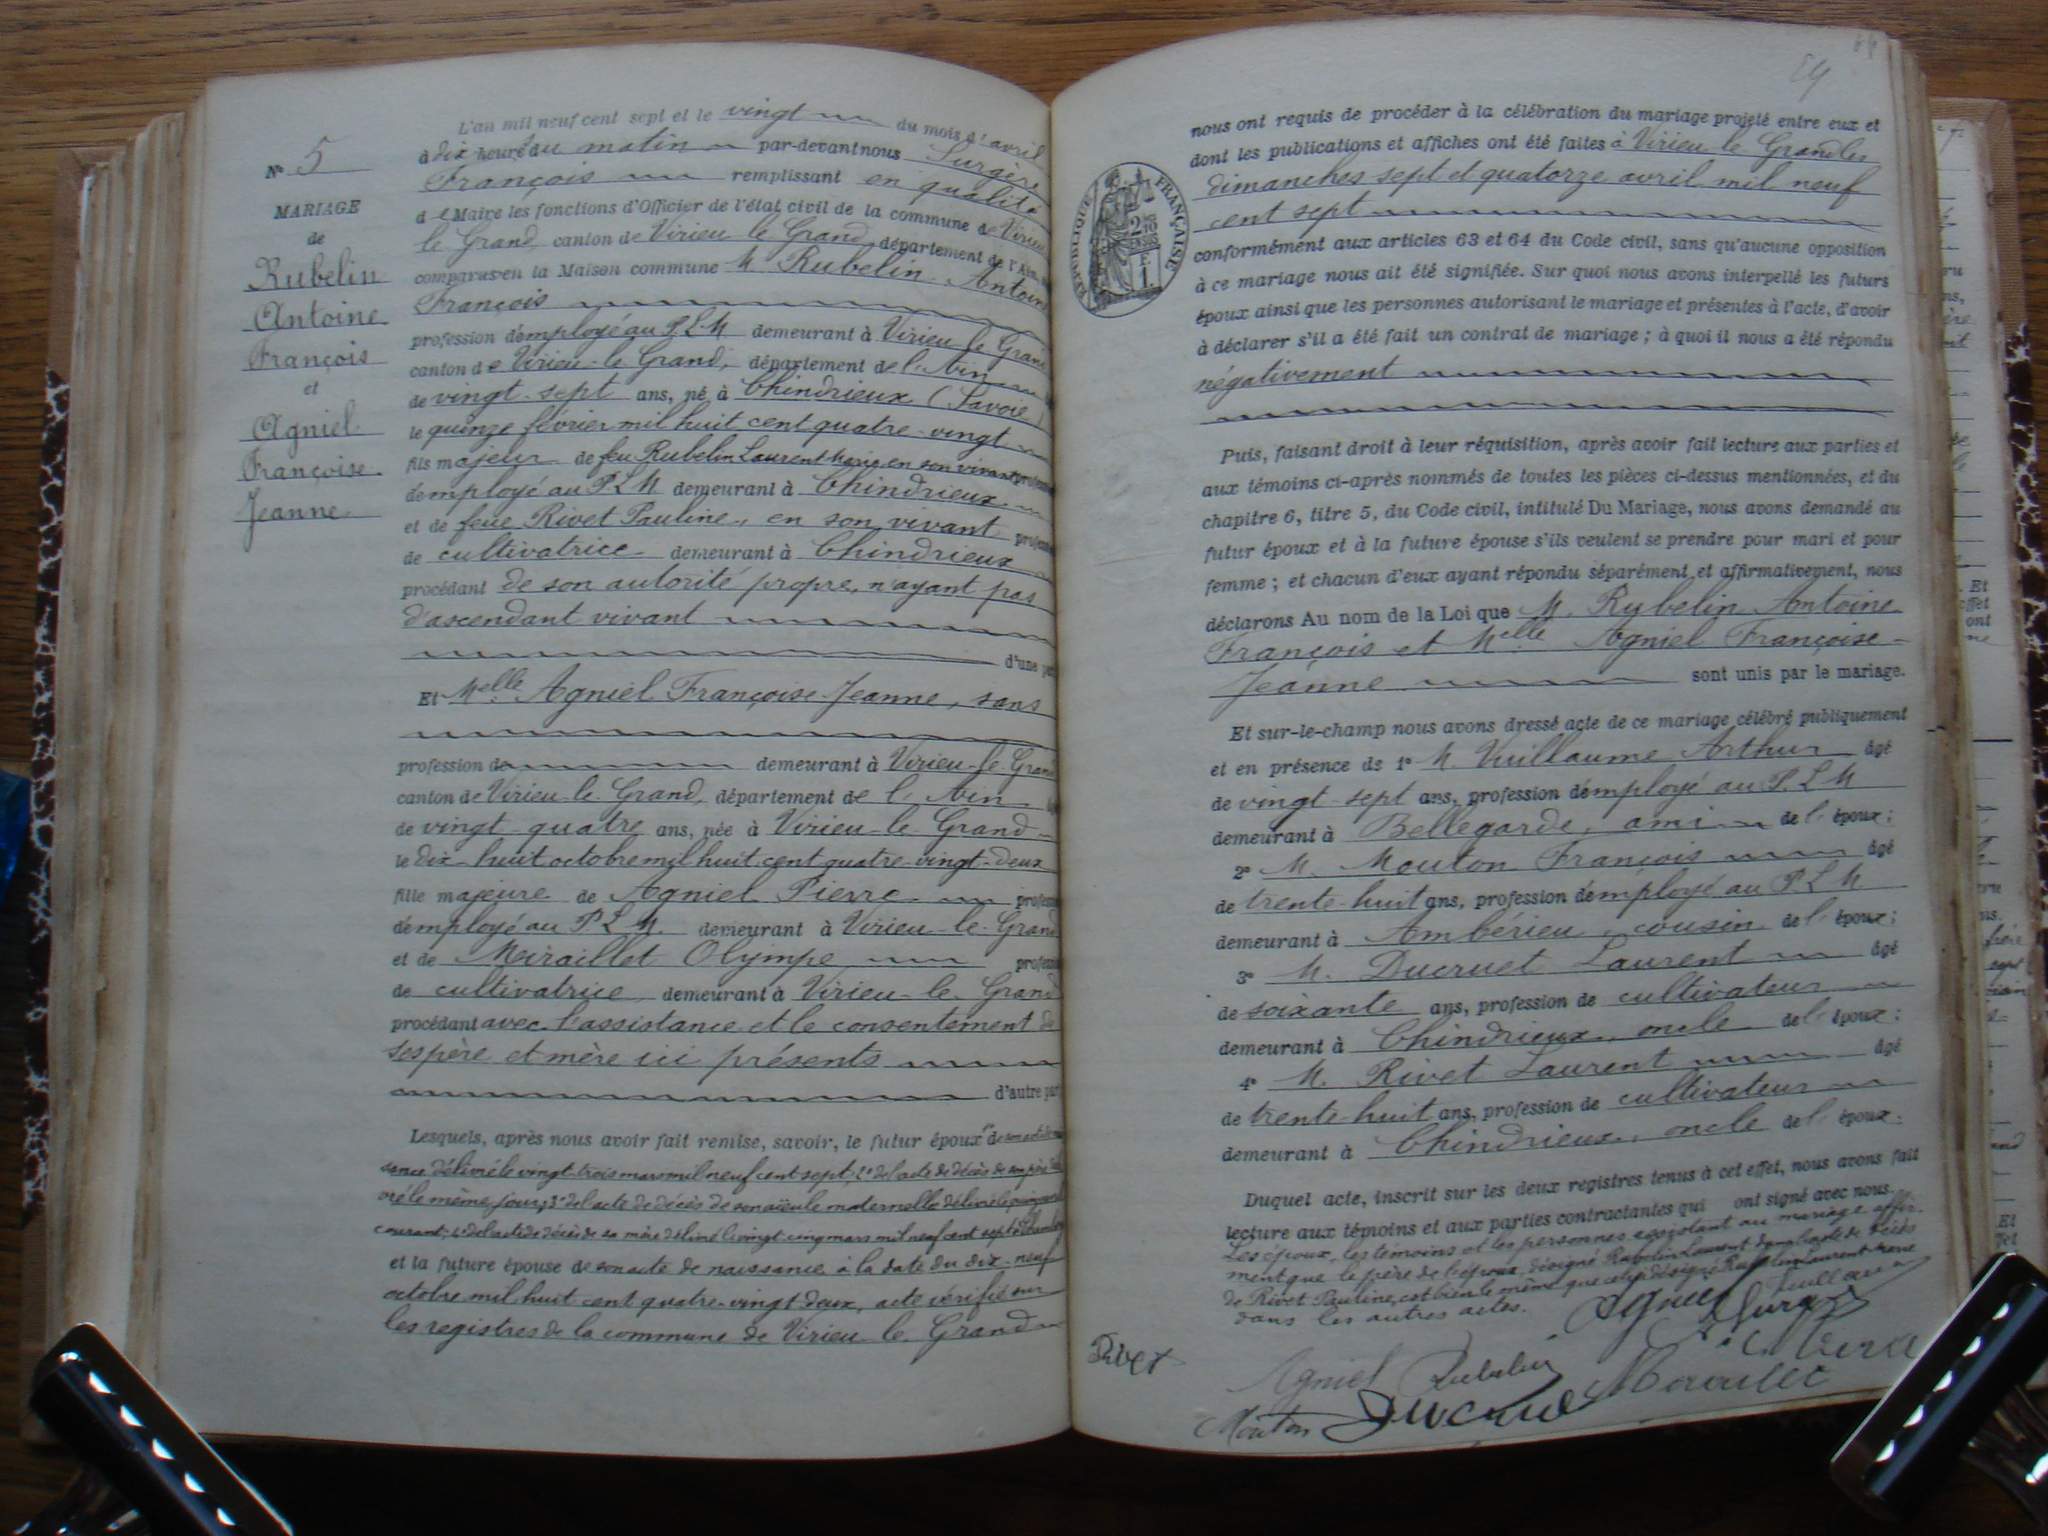 L'an mil neuf cent sept et le vingt du mois d'avril
à dix heure du matin par-devant nous Surgère
François remplissant en qualité
de Maire les fonctions d'Officier de l'état civil de la commune de Virieu
le Grand, canton de Virieu le Grand, département de l'Ain,
comparus en la Maison commune M. Rubelin Antoine
François
profession d'employé au P.L.M demeurant à Virieu le Grand
canton de Virieu-le-Grand, département de l'Ain
de vingt-sept ans, né à Chindrieux (Savoie)
le quinze février mil huit cent quatre-vingt
fils majeur de feu Rubelin Laurent Marie en son vivant
d'employé au P L M demeurant à Chindrieux
et de feue Rivet Pauline, en son vivant
de cultivatrice demeurant à Chindrieux
procédant de son autorité propre, n'ayant pas
d'ascendant vivant
d'une part
Et Melle Agniel Françoise Jeanne, sans
profession de demeurant à Virieu-le-Grand
canton de Virieu-le-Grand, département de l'Ain
de vingt-quatre ans, née à Virieu-le-Grand
le dix-huit octobre mil huit cent quatre-vingt-deux
fille majeure de Agniel Pierre
d'employé au P L M. demeurant à Virieu-le-Grand
et de Meraillet Olympe
de cultivatrice demeurant à Virieu-le-Grand
procédant avec l'assistance et le consentement de
ses père et mère ici présents
d'autre part
Lesquels, après nous avoir fait remise, savoir, le futur époux 1° de son acte de nais
sance délivré le vingt-trois mars mil neuf cent sept; 2° de l'acte de décès de son père
vré le même jour; 3° de l'acte de décès de son aïeule maternelle délivré le
courant; 4° de l'acte de décès de sa mère délivré le vingt-cinq mars mil neuf cent sept à
et la future épouse de son acte de naissance à la date du dix-neuf
octobre mil huit cent quatre-vingt deux, acte vérifié sur
les registres de la commune de Virieu le Grand
N° 5
MARIAGE
de
Rubelin
Antoine
François
et
Agniel
Françoise
Jeanne
nous ont requis de procéder à la célébration du mariage projeté entre eux et
dont les publications et affiches ont été faites à Virieu-le-Grand les
dimanches sept et quatorze avril mil neuf
cent sept
conformément aux articles 63 et 64 du Code civil, sans qu'aucune opposition
à ce mariage nous ait été signifiée. Sur quoi nous avons interpellé les futurs
époux ainsi que les personnes autorisant le mariage et présentes à l'acte, d'avoir
à déclarer s'il a été fait un contrat de mariage; à quoi il nous a été répondu
négativement
RÉPUBLIQUE FRANÇAISE
Puis, faisant droit à leur réquisition, après avoir fait lecture aux parties et
aux témoins ci-après nommés de toutes les pièces ci-dessus mentionnées, et du
chapitre 6, titre 5, du Code civil, intitulé Du Mariage, nous avons demandé au
futur époux et à la future épouse s'ils veulent se prendre pour mari et pour
femme; et chacun d'eux ayant répondu séparément et affirmativement, nous
déclarons Au nom de la Loi que M. Rubelin Antoine
François et Melle Agniel Françoise
Jeanne sont unis par le mariage.
Et sur-le-champ nous avons dressé acte de ce mariage célébré publiquement
et en présence de 1° M. Vuillaume Arthur âgé
de vingt-sept ans, profession d'employé au P. L M
demeurant à Bellegarde, ami de l'époux;
2° M. Mouton François âgé
de trente-huit ans, profession d'employé au P L M.
demeurant à Ambérieu, cousin de l'époux;
3° M. Ducruet Laurent âgé
de soixante ans, profession de cultivateur
demeurant à Chindrieux, oncle de l'époux;
4° M. Rivet Laurent âgé
de trente-huit ans, profession de cultivateur
demeurant à Chindrieux, oncle de l'époux.
Duquel acte, inscrit sur les deux registres tenus à cet effet, nous avons fait
lecture aux témoins et aux parties contractantes qui ont signé avec nous.
Les époux, les témoins et les personnes assistant au mariage affir-
ment que le père de l'époux, désigné Rubelin Laurent dans l'acte de décès
de Rivet Pauline, est bien le même que celui désigné Rubelin Laurent-Marie
dans les autres actes.
Rivet
Agniel Rubelin
Mouton Ducruet